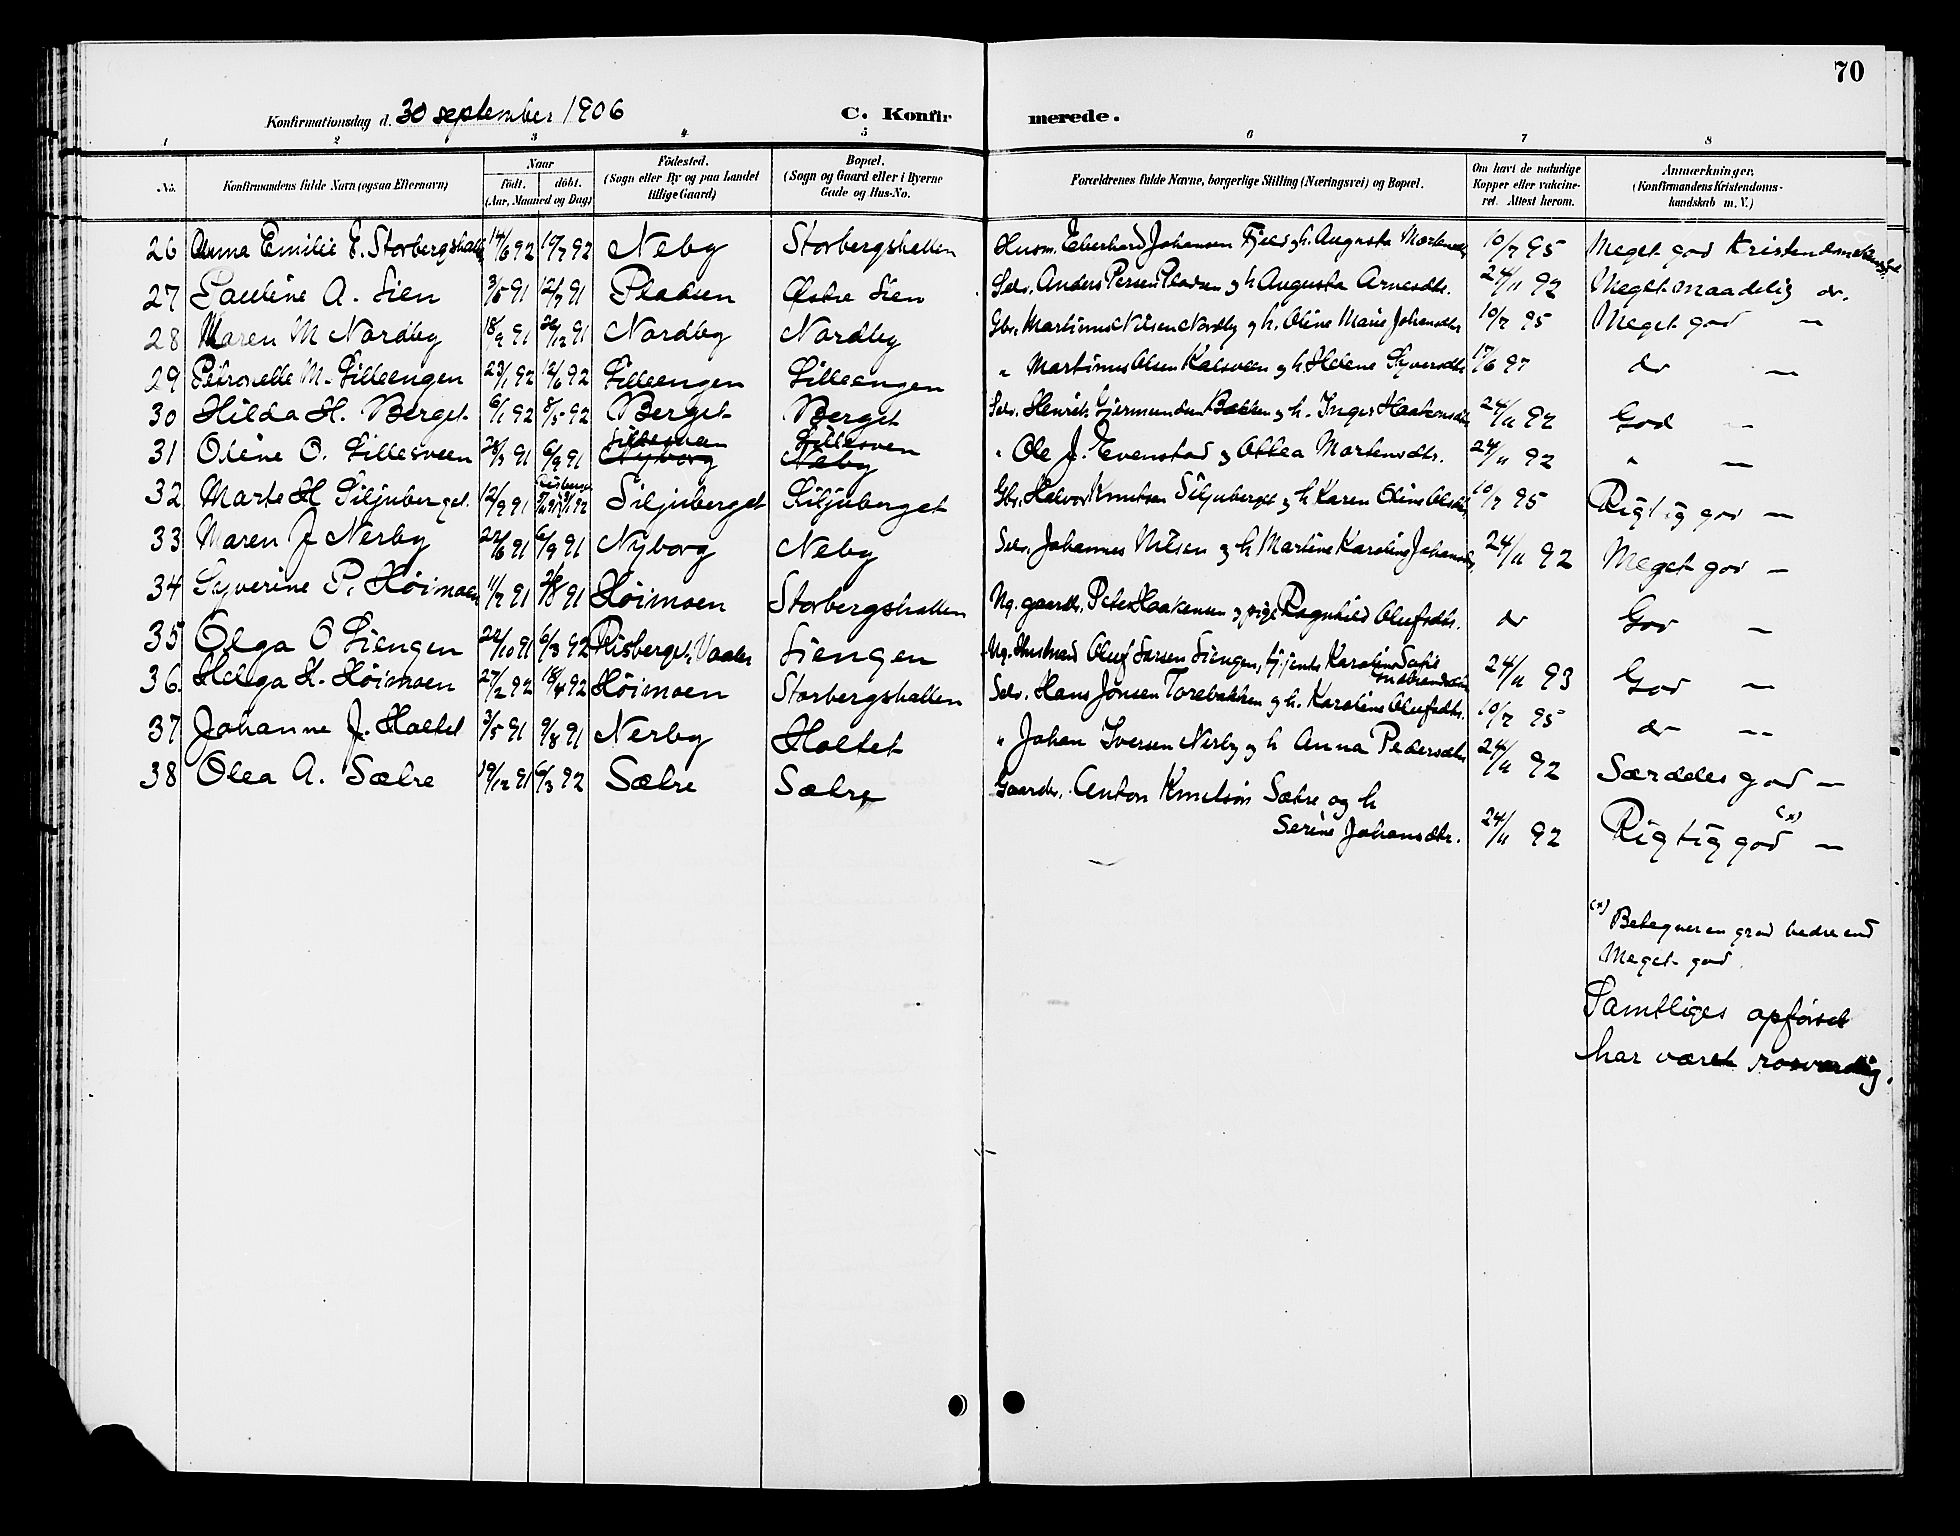 70
Konfirmationsdag d. 30 september 1906 C. Konfirmerede.
1 2 3 4 5 6 7 8
No. Konfirmandens fulde Navn (ogsaa Efternavn) Naar født. døbt. (Aar, Maaned og Dag) Fødested. (Sogn eller By og paa Landet tillige Gaard) Bopæl. (Sogn og Gaard eller i Byerne Gade og Hus-No.) Forældrenes fulde Navne, borgerlige Stilling (Næringsvei) og Bopæl. Om havt de naturlige Kopper eller vakcineret. Attest herom. Anmærkninger. (Konfirmandens Kristendomskundskab m. V.)
26 Anna Emilie E. Storbergshallen 14/6 92 10/7 92 Neby Storbergshallen Husm. Eberhard Johansen Fjeld g h. Augusta Martensdtr 10/7 95 Meget god Kristendomskundskab
27 Pauline A. Lien 3/6 91 12/7 91 Pladsen Østre Lien Selv. Anders Persen Pladsen g h Augusta Arnesdtr. 24/11 92 Meget maadelig do.
28 Maren M Nordby 18/9 91 26/12 91 Nordby Nordby Gbr. Martinus Nilsen Nordby g h. Oline Marie Johansdtr 10/7 95 Meget god —
29 Petronelle M. Lilleengen 23/1 92 12/6 92 Lilleengen Lilleengen " Martinus Olsen Kalsveen g h. Helene Syversdtr 17/6 97 do —
30 Hilda H. Berget 6/1 92 8/5 92 Berget Berget Selv. Henrik Gjermundsen Bakken g h. Inger Haakensdtr 24/11 92 God —
31 Oline O. Lillesveen 28/3 91 6/9 91 Lillesveen Nyborg Lillesveen Neby " Ole J. Evenstad g Othea Martensdtr. 24/11 92 " —
32 Marte H Siljuberget 12/9 91 Siljuberget Siljuberget Gbr. Halvor Knutsen Siljuberget g h Karen Oline Olsdtr 10/7 95 Rigtig god —
33 Maren J Nerby 22/6 91 6/9 91 Nyborg Neby Selv. Johannes Nilsen g h Martine Karoline Johansdtr. 24/11 92 Meget god —
34 Syverine P. Høimoen 11/7 91 91 Høimoen Storbergshallen Ug. gaardbr. Peter Haakensen g pige Ragnhild Olufsdtr. do God —
35 Olga O Liengen 22/10 91 6/3 92 Risberget, Vaaler Liengen Ug. Husmand Oluf Larsen Liengen, tj.jente Karoline Sofie 24/11 93 God —
36 Helga H. Høimoen 27/2 92 18/4 92 Høimoen Storbergshallen Selv. Hans Jonsen Torebakken g h. Karoline Olufsdtr. 10/7 95 do —
37 Johanne J. Holtet 3/5 91 9/8 91 Nerby Holtet " Johan Iversen Nerby g h Anna Pedersdtr 24/11 92 Særdeles god —
38 Olea A. Sætre 19/12 91 6/3 92 Sætre Sætre Gaardbr. Anton Knutsøn Sætre og h
Serine Johansdtr. 24/11 92 Rigtig god (x) —
(x) Betegner en grad bedre end
Meget god.
Samtliges opførsel
har været rosværdig.